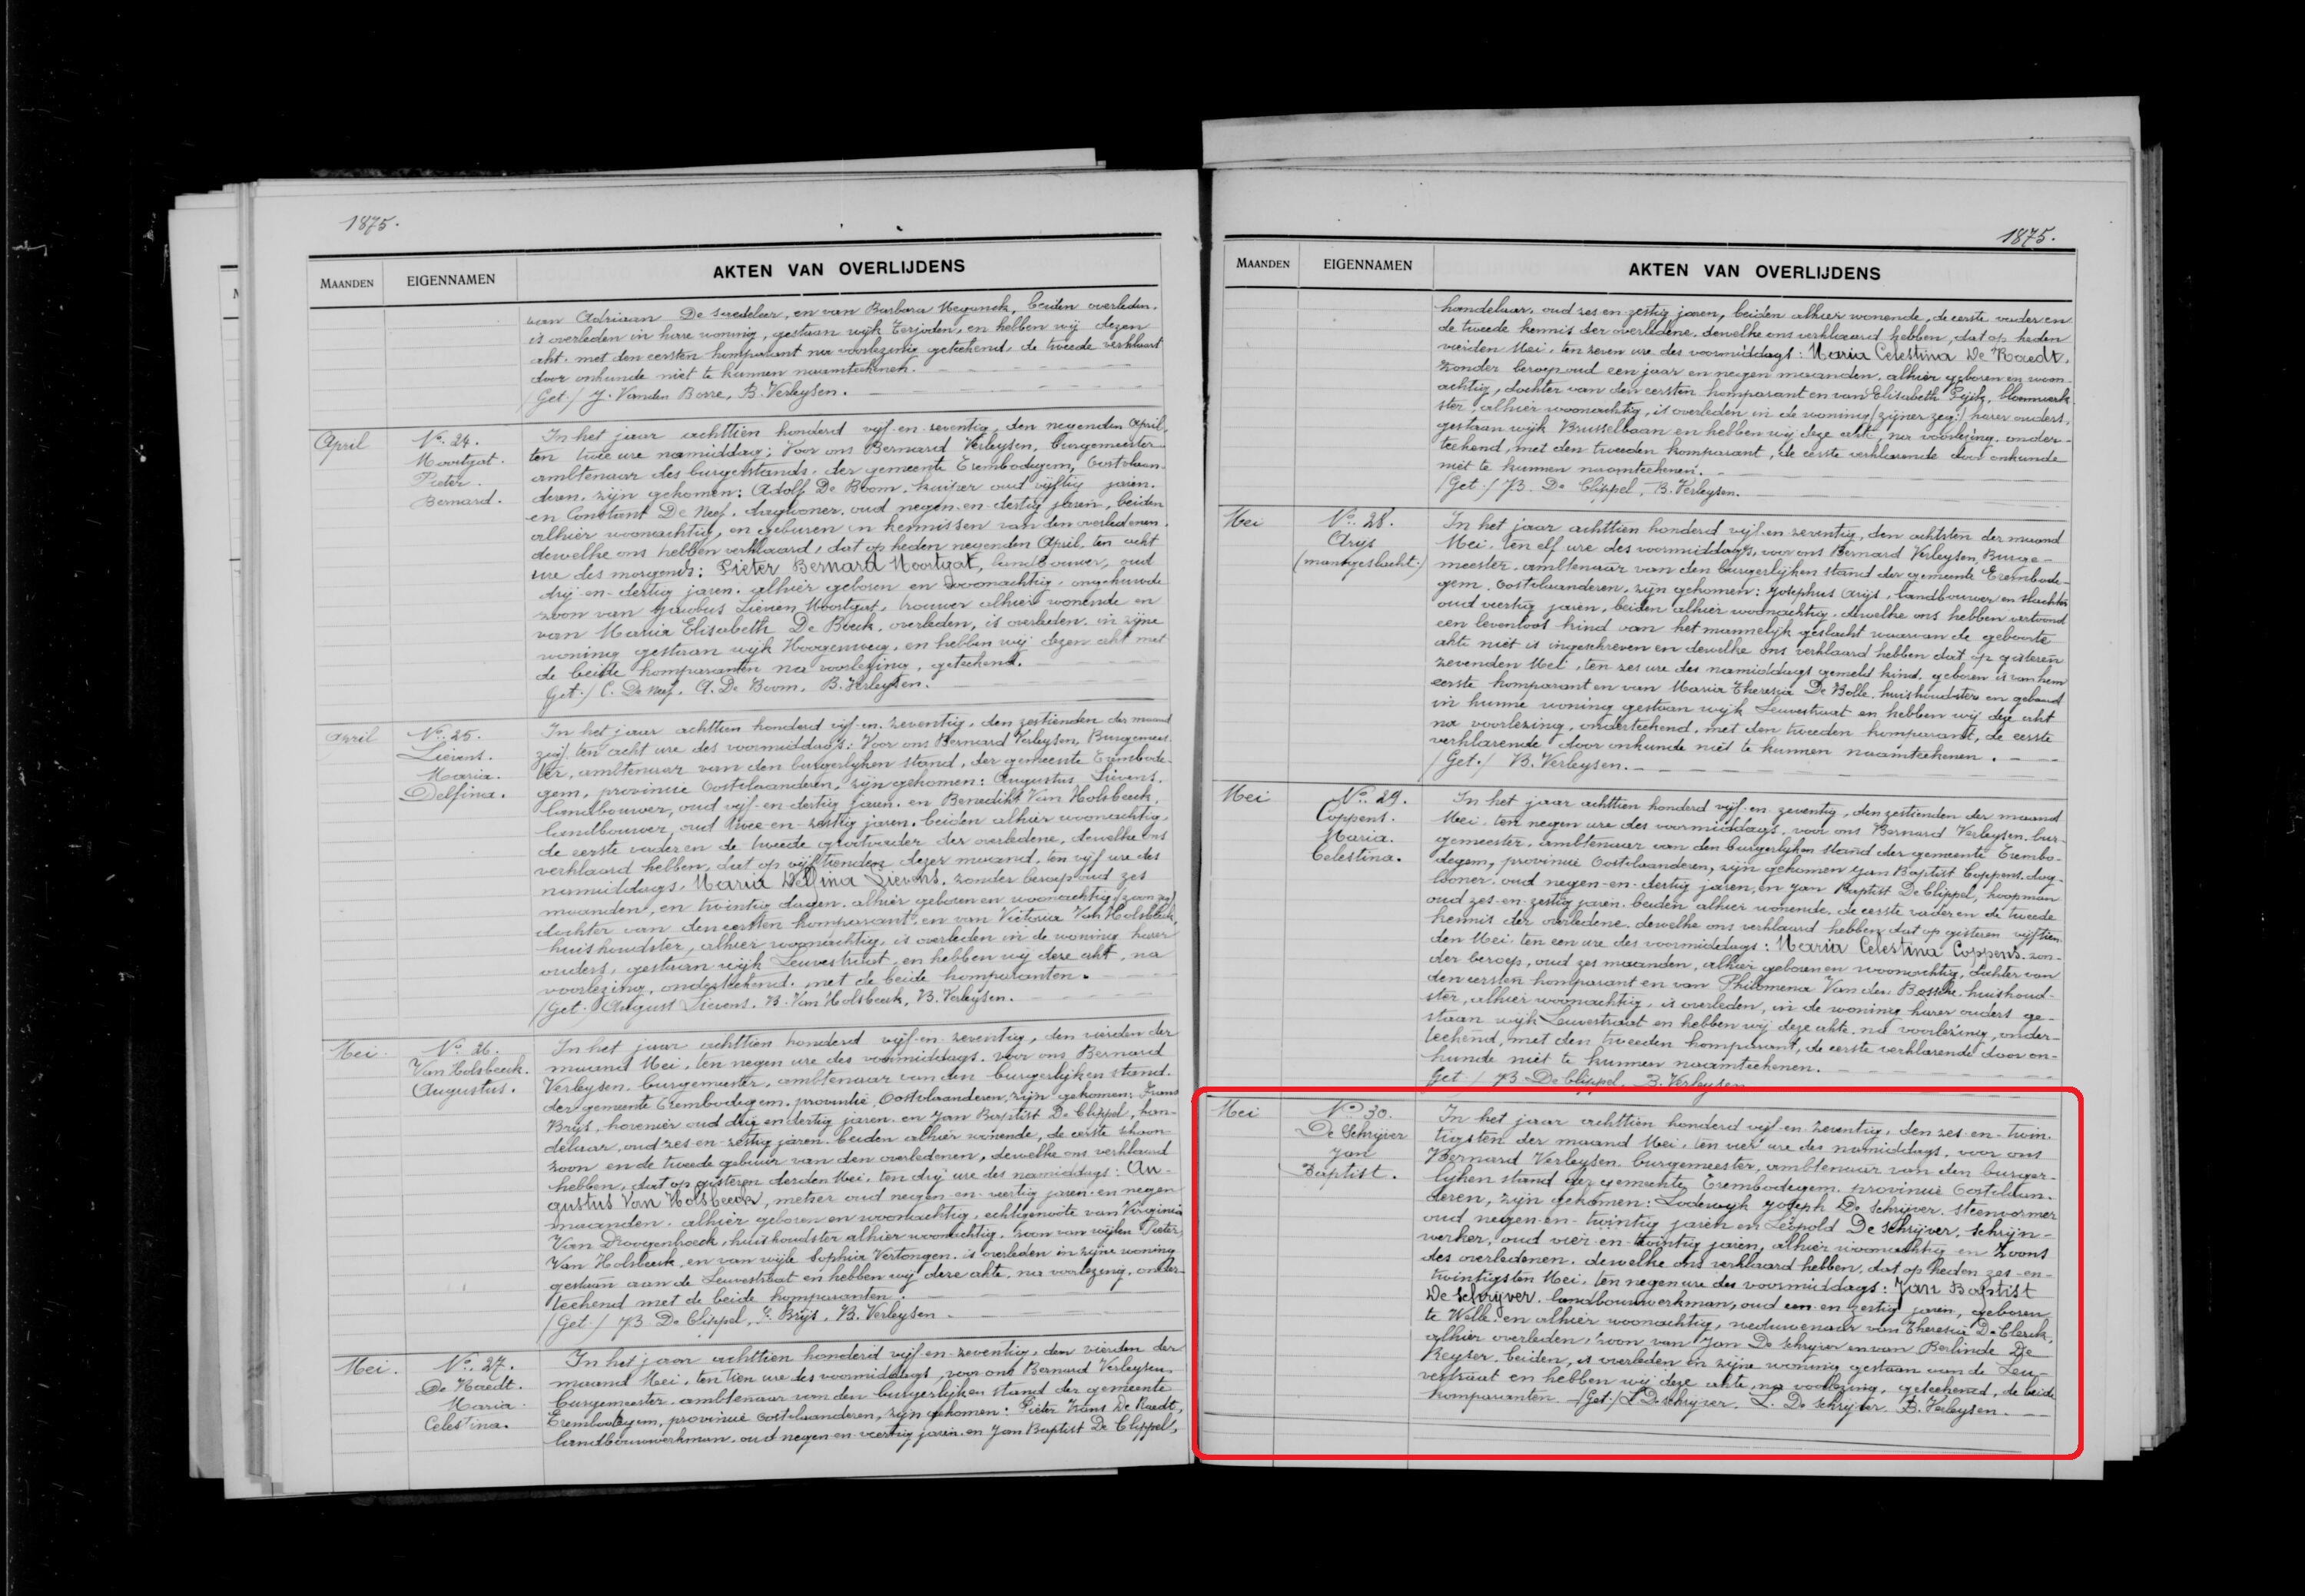 1875.
MAANDEN EIGENNAMEN AKTEN VAN OVERLIJDENS
van Adriaan De Smedeleer, en van Barbara Meganck, beiden overleden.
is overleden in hare woning, gestaan wijk Terjoden, en hebben wij dezen
akt. met den eersten komparant na voorlezing geteekend. de tweede verklaart
door onkunde niet te kunnen naamteekenen.
/Get./ J. Vanden Borre, B. Verleysen.
April
No. 24.
Moortgat.
Pieter.
Bernard.
In het jaar achttien honderd vijf-en-seventig, den negenden April,
ten twee ure namiddag; Voor ons Bernard Verleysen, burgemeester
ambtenaar des burgerstands. der gemeente Erembodegem, Oostvlaan-
deren. zijn gekomen: Adolf De Boom. kuiper oud vijftig jaren.
en Constant De Neef. dagloner. oud negen-en-dertig jaren, beiden
alhier woonachtig, en geburen en kennissen van den overledenen.
dewelke ons hebben verklaard, dat op heden negenden April. ten acht
ure des morgends: Pieter Bernard Moortgat, landbouwer, oud
drij-en-dertig jaren. alhier geboren en woonachtig. ongehuwde
zoon van Jacobus Lieven Moortgat, brouwer alhier wonende en
van Maria Elisabeth De Bock. overleden, is overleden. in zijne
woning gestaan wijk Hoogenweg, en hebben wij dezen akt met
de beide komparanten na voorlezing, geteekend.
Get./ C. De Neef. A. De Boom. B. Verleysen.
April
No. 25.
Lievens.
Maria.
Delfina.
In het jaar achttien honderd vijf-en-zeventig, den zestienden der maand
zegf. ten acht ure des voormiddags: Voor ons Bernard Verleysen, Burgemees-
ter, ambtenaar van den burgerlijken stand, der gemeente Erembode-
gem, provincie Oostvlaanderen, zijn gekomen: Augustus Lievens.
landbouwer, oud vijf-en-dertig jaren. en Benedikt Van Holsbeeck,
landbouwer, oud twee-en-zestig jaren. beiden alhier woonachtig,
de eerste vader en de tweede grootvader der overledene, dewelke ons
verklaard hebben, dat op vijftienden dezer maand, ten vijf ure des
namiddags, Maria Delfina Lievens. zonder beroep oud zes
maanden, en twintig dagen. alhier geboren en woonachtig (zoon zeg)
dochter van den eersten komparant. en van Victoria Van Holsbeeck,
huishoudster, alhier woonachtig, is overleden in de woning harer
ouders, gestaan wijk Leuvestraat, en hebben wij deze akt, na
voorlezing, onderteekend. met de beide komparanten.
/Get./ August Lievens. B. Van Holsbeeck, B. Verleysen.
Mei.
No. 26.
Van Holsbeeck.
Augustus.
In het jaar achttien honderd vijf-en-zeventig, den vierden der
maand Mei, ten negen ure des voormiddags. voor ons Bernard
Verleysen. burgemeester, ambtenaar van den burgerlijken stand.
der gemeente Erembodegem. provintie Oostvlaanderen, zijn gekomen: Frans
Brijs, hovenier oud drij en dertig jaren. en Jan Baptist De Clippel, han-
delaar, oud zes-en-zestig jaren. beiden alhier wonende, de eerste schoon
zoon en de tweede gebuur van den overledenen, dewelke ons verklaard
hebben, dat op gisteren derden Mei. ten drij ure des namiddags: Au-
gustus Van Holsbeeck, metser oud negen-en-veertig jaren en negen
maanden. alhier geboren en woonachtig. echtgenoote van Virginia
Van Droogenbroeck, huishoudster alhier woonachtig. zoon van wijlen Pieter,
Van Holsbeeck, en van wijle Sophia Vertongen. is overleden in zijne woning
gestaan aan de Leuvestraat en hebben wij deze akte, na voorlezing. onder-
teekend met de beide komparanten.
/Get./ JB. De Clippel, F. Brijs, B. Verleysen
Mei.
No. 27.
De Raedt.
Maria.
Celestina.
In het jaar achttien honderd vijf-en-zeventig, den vierden der
maand Mei. ten tien ure des voormiddags, voor ons Bernard Verleysen.
burgemeester. ambtenaar van den burgerlijken stand der gemeente
Erembodegem, provincie Oostvlaanderen, zijn gekomen: Pieter Frans De Raedt,
landbouwerkman. oud negen-en-veertig jaren. en Jan Baptist De Clippel,
1875.
MAANDEN EIGENNAMEN AKTEN VAN OVERLIJDENS
handelaar. oud zes en zestig jaren, beiden alhier wonende, de eerste vader en
de tweede kennis der overledene. dewelke ons verklaard hebben, dat op heden
vierden Mei. ten zeven ure des voormiddags: Maria Celestina De Raedt.
zonder beroep oud een jaar en negen maanden. alhier geboren en woon-
achtig, dochter van den eersten komparant en van Elisabeth bloemwerk-
ster, alhier woonachtig, is overleden in de woning (zijner zeg:) harer ouders.
gestaan wijk Brusselbaan en hebben wij deze akt, na voorlezing. onder-
teekend, met den tweeden komparant, de eerste verklarende door onkunde
niet te kunnen naamteekenen.
/Get./ JB. De Clippel, B. Verleysen.
Mei
No. 28.
Arijs
(mansgeslacht.)
In het jaar achttien honderd vijf-en-zeventig, den achtsten der maand
Mei. ten elf ure des voormiddags, voor ons Bernard Verleysen, Burge-
meester. ambtenaar van den burgerlijken stand der gemeente Erembode-
gem, Oostvlaanderen, zijn gekomen: Josephus Arijs, landbouwer en slachter
oud veertig jaren, beiden alhier woonachtig, dewelke ons hebben vertoond
een levenloos kind van het mannelijk geslacht waarvan de geboorte
akte niet is ingeschreven en dewelke ons verklaard hebben dat op gisteren
zevenden Mei, ten zes ure des namiddags gemeld kind. geboren is van hem
eerste komparant en van Maria Theresia De Bolle. huishoudster en gebaard
in hunne woning gestaan wijk Leuvestraat en hebben wij deze akt
na voorlezing, onderteekend. met den tweeden komparant, de eerste
verklarende door onkunde niet te kunnen naamteekenen.
/Get./ B. Verleysen.
Mei
No. 29.
Coppens.
Maria.
Celestina.
In het jaar achttien honderd vijf-en-zeventig, den zestienden der maand
Mei. ten negen ure des voormiddags. voor ons Bernard Verleysen. bur-
gemeester. ambtenaar van den burgerlijken stand der gemeente Erembo-
degem, provincie Oostvlaanderen, zijn gekomen Jan Baptist Coppens. dag-
looner. oud negen-en-dertig jaren, en Jan Baptist De Clippel, koopman
oud zes-en-zestig jaren. beiden alhier wonende. de eerste vader en de tweede
kennis der overledene. dewelke ons verklaard hebben, dat op gisteren vijftien-
den Mei, ten een ure des voormiddags: Maria Celestina Coppens. zon-
der beroep, oud zes maanden, alhier geboren en woonachtig, dochter van
den eersten komparant en van Philomena Van den Bossche. huishoud-
ster, alhier woonachtig, is overleden, in de woning harer ouders ge-
staan wijk Leuvestraat en hebben wij deze akte. na voorlezing, onder-
teekend, met den tweeden komparant, de eerste verklarende door on-
kunde niet te kunnen naamteekenen.
Get./ JB De Clippel. B. Verleysen
Mei
No 30.
De Schrijver
Jan
Baptist.
In het jaar achttien honderd vijf-en-zeventig, den zes-en-twin-
tigsten der maand Mei, ten vier ure des namiddags. voor ons
Bernard Verleysen. burgemeester, ambtenaar van den burger-
lijken stand der gemeente Erembodegem. provincie Oostvlaan-
deren, zijn gekomen: Lodewijk Joseph De Schrijver. steenvormer
oud negen-en-twintig jaren en Leopold De Schrijver, schrijn-
werker, oud vier-en-twintig jaren, alhier woonachtig en zoons
des overledenen. dewelke ons verklaard hebben, dat op heden zes-en-
twintigsten Mei. ten negen ure des voormiddags: Jan Baptist
De Schrijver. landbouwwerkman, oud een-en-zestig jaren, geboren
te Welle en alhier woonachtig, weduwenaar van Theresia De Clerck,
alhier overleden, zoon van Jan De Schrijver en van Berlinde De
Keyser. beiden, is overleden in zijne woning gestaan aan de Leu-
vestraat en hebben wij deze akte, na voorlezing, geteekend, de beide
komparanten /Get./ L De Schrijver. L. De Schrijver. B. Verleysen.